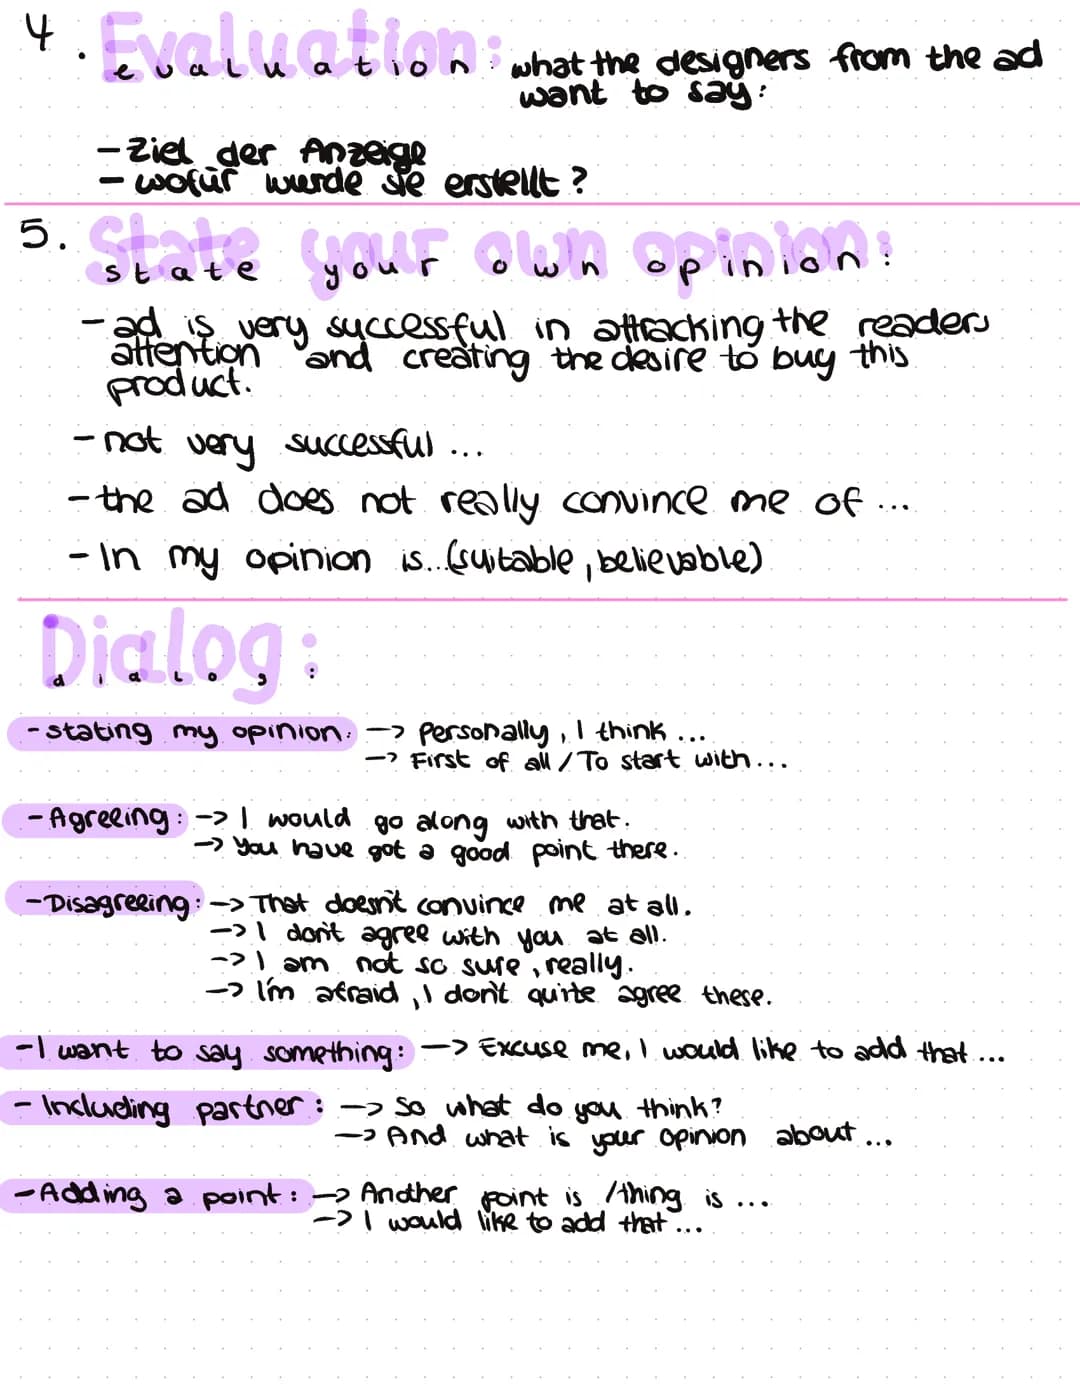 4. Evaluation: what the designers from the ad
evaluation want to say:
- Ziel der Anzeige
- wofür wurde sie erstellt?
5. State your own opinion:
state your own opinion
- ad is very successful in attracking the readers
attention and creating the desire to buy this
product.
- not very successful ...
- the ad does not really convince me of ...
- In my opinion is...(suitable, believable)
Dialog:
dialog:
- stating my opinion: -> Personally, I think ...
-> First of all / To start with...
- Agreeing: -> I would go along with that.
-> You have got a good point there.
- Disagreeing: -> That doesn't convince me at all.
-> I don't agree with you at all.
-> I am not so sure, really.
-> I'm afraid, I don't quite agree these.
- I want to say something: -> Excuse me, I would like to add that ...
- Including partner: -> So what do you think?
-> And what is your opinion about ...
- Adding a point: -> Another point is /thing is ...
-> I would like to add that ...